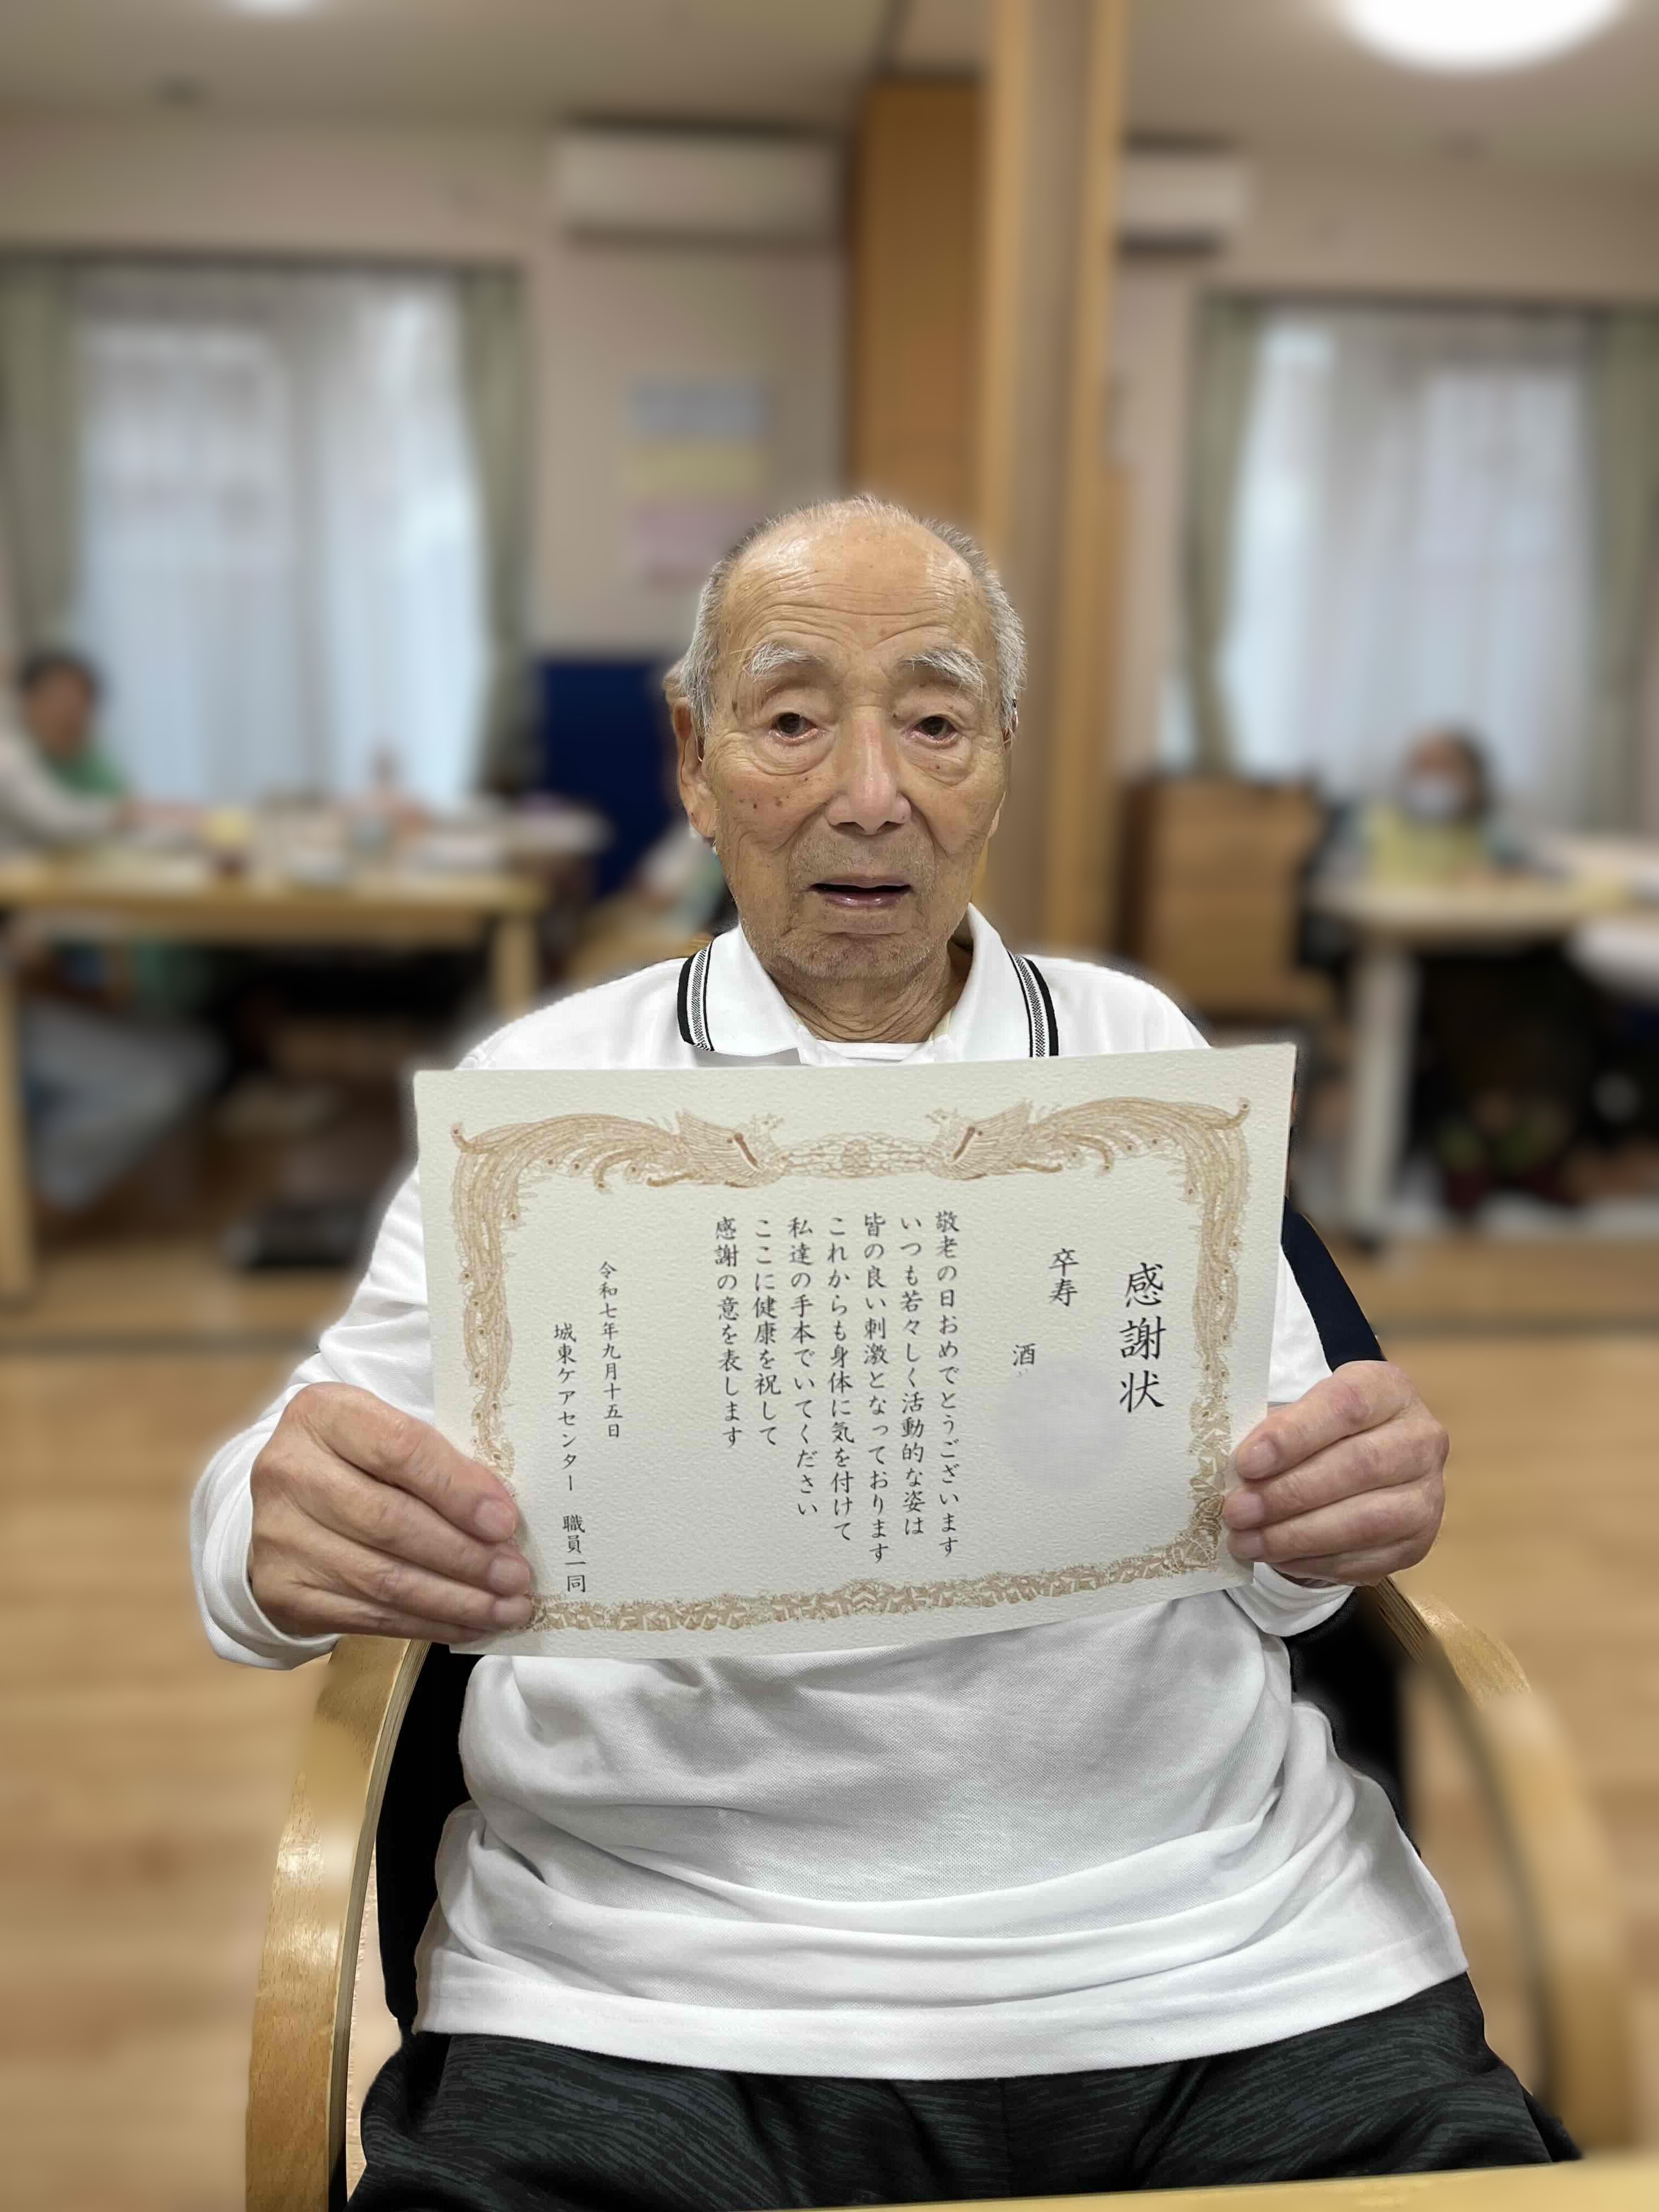 感謝状
卒寿
酒
敬老の日おめでとうございます
いつも若々しく活動的な姿は
皆の良い刺激となっております
これからも身体に気を付けて
私達の手本でいてください
ここに健康を祝して
感謝の意を表します
令和七年九月十五日
城東ケアセンター　職員一同